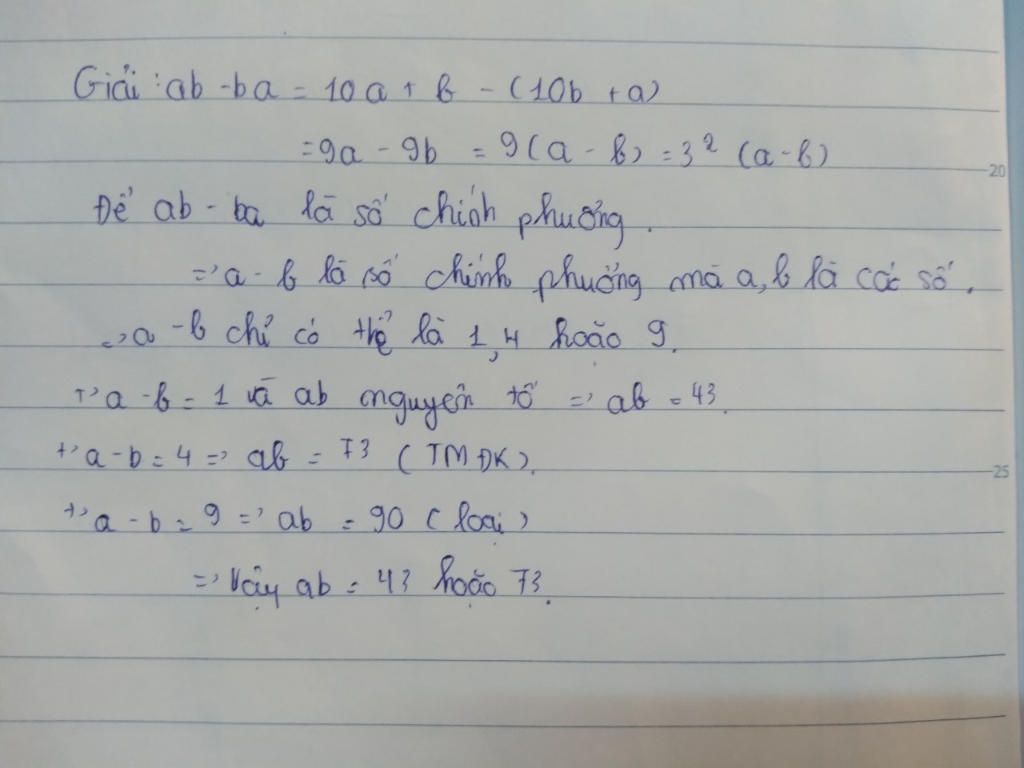 Giải : ab - ba = 10a + b - (10b + a)
= 9a - 9b = 9(a - b) = 3² (a - b)
20
Để ab - ba là số chính phương.
=> a - b là số chính phương mà a, b là các số.
=> a - b chỉ có thể là 1, 4 hoặc 9.
+> a - b = 1 và ab nguyên tố => ab = 43.
+> a - b = 4 => ab = 73 (TMĐK).
25
+> a - b = 9 => ab = 90 (loại)
=> Vậy ab = 43 hoặc 73.